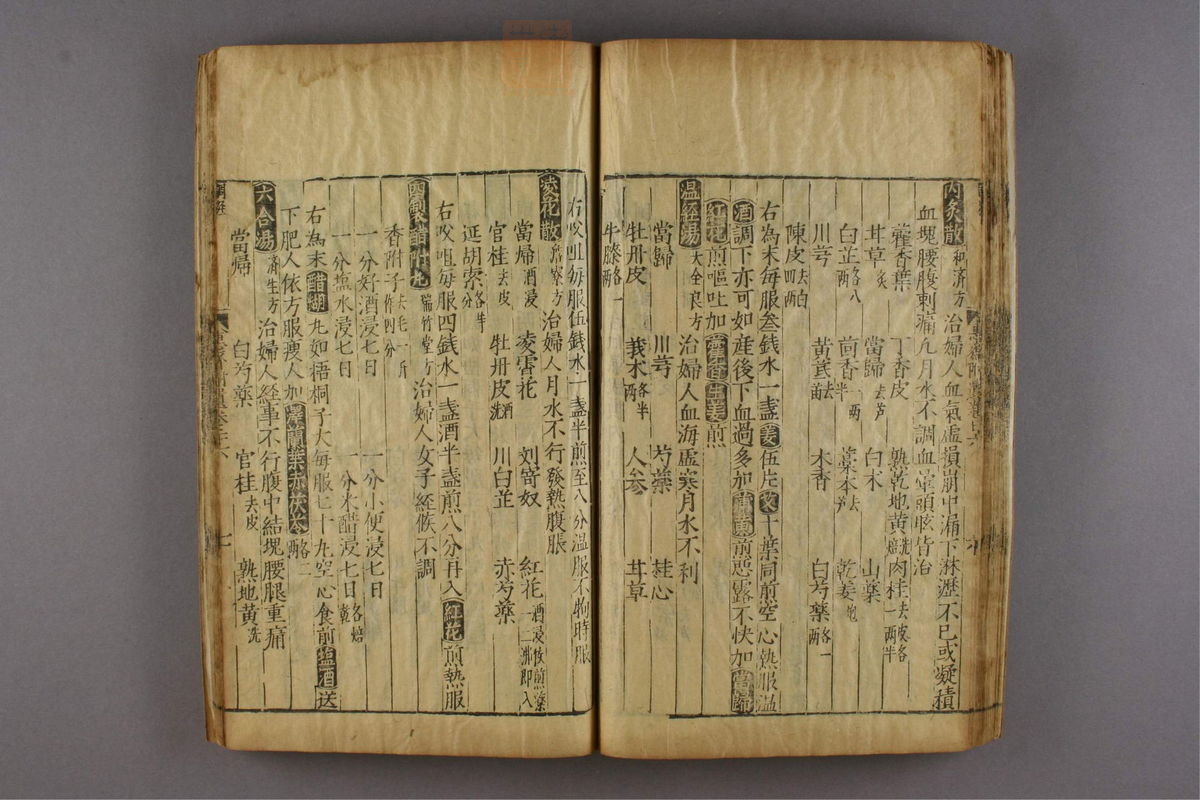 内灸散 和済方 治婦人血氣虚損崩中漏下淋瀝不已或凝積
血塊腰腹刺痛凡月水不調血暈頭眩皆治
藿香葉 丁香皮 熟乾地黄洗焙 肉桂去皮各一兩半
甘草炙 當歸去芦 白朮 山藥
白芷各八兩 茴香一兩半 藁本去芦 乾姜炮
川芎 黄芪去芦 木香 白芍藥各一兩
陳皮去白四兩
右為末每服叁銭水一盞姜伍片艾十葉同煎空心熱服温
酒調下亦可如産後下血過多加蒲黄煎惡露不快加當歸
紅花煎嘔吐加藿香生姜煎
温經湯 大全良方 治婦人血海虚寒月水不利
當歸 川芎 芍藥 桂心
牡丹皮 莪朮各半兩 人参 甘草
牛膝各一兩
右㕮咀每服伍銭水一盞半煎至八分温服不拘時服
凌花散 治婦人月水不行發熱腹脹
當帰酒浸 凌霄花 刘寄奴 紅花酒浸候煎藥一二沸即入
官桂去皮 牡丹皮酒洗 川白芷 赤芍藥
延胡索各半分
右㕮咀每服四銭水一盞酒半盞煎八分再入紅花煎熱服
四製醋附丸 瑞竹堂方 治婦人女子経候不調
香附子去毛一斤作四分
一分好酒浸七日 一分小便浸七日
一分塩水浸七日 一分米醋浸七日各焙乾
右為末醋糊丸如梧桐子大每服七十丸空心食前塩酒送
下肥人依方服痩人加澤蘭葉赤茯苓各二兩
六合湯 済生方 治婦人経事不行腹中結塊腰腿重痛
當帰 白芍藥 官桂去皮 熟地黄洗